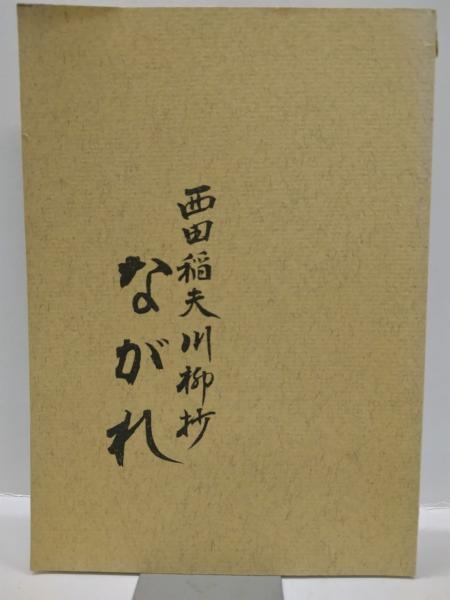 西田稲夫川柳抄
ながれ